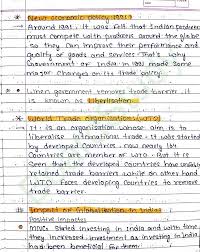 New economic policy 1991:
→ Around 1991, it was felt that Indian producers
must compete with producers around the globe
so they can improve their performance and
quality of goods and services. That's why
Government of India in 1991 made some
major changes on its trade policy.
When government removes trade barrier, it
is known as liberlisation.
World Trade Organisation (WTO)
→ It is an organisation whose aim is to
liberalise international trade. It was started
by developed countries. now nearly 164
Countries are member of WTO. But it is
seen that the developed countries have
retained trade barriers while on other hand
WTO Force developing countries to remove
trade barrier
Impact of Globalisation in India:
Positive Impacts
MNCs started investing in India and with time
they increased investment as investing in India
had been beneficial for them.